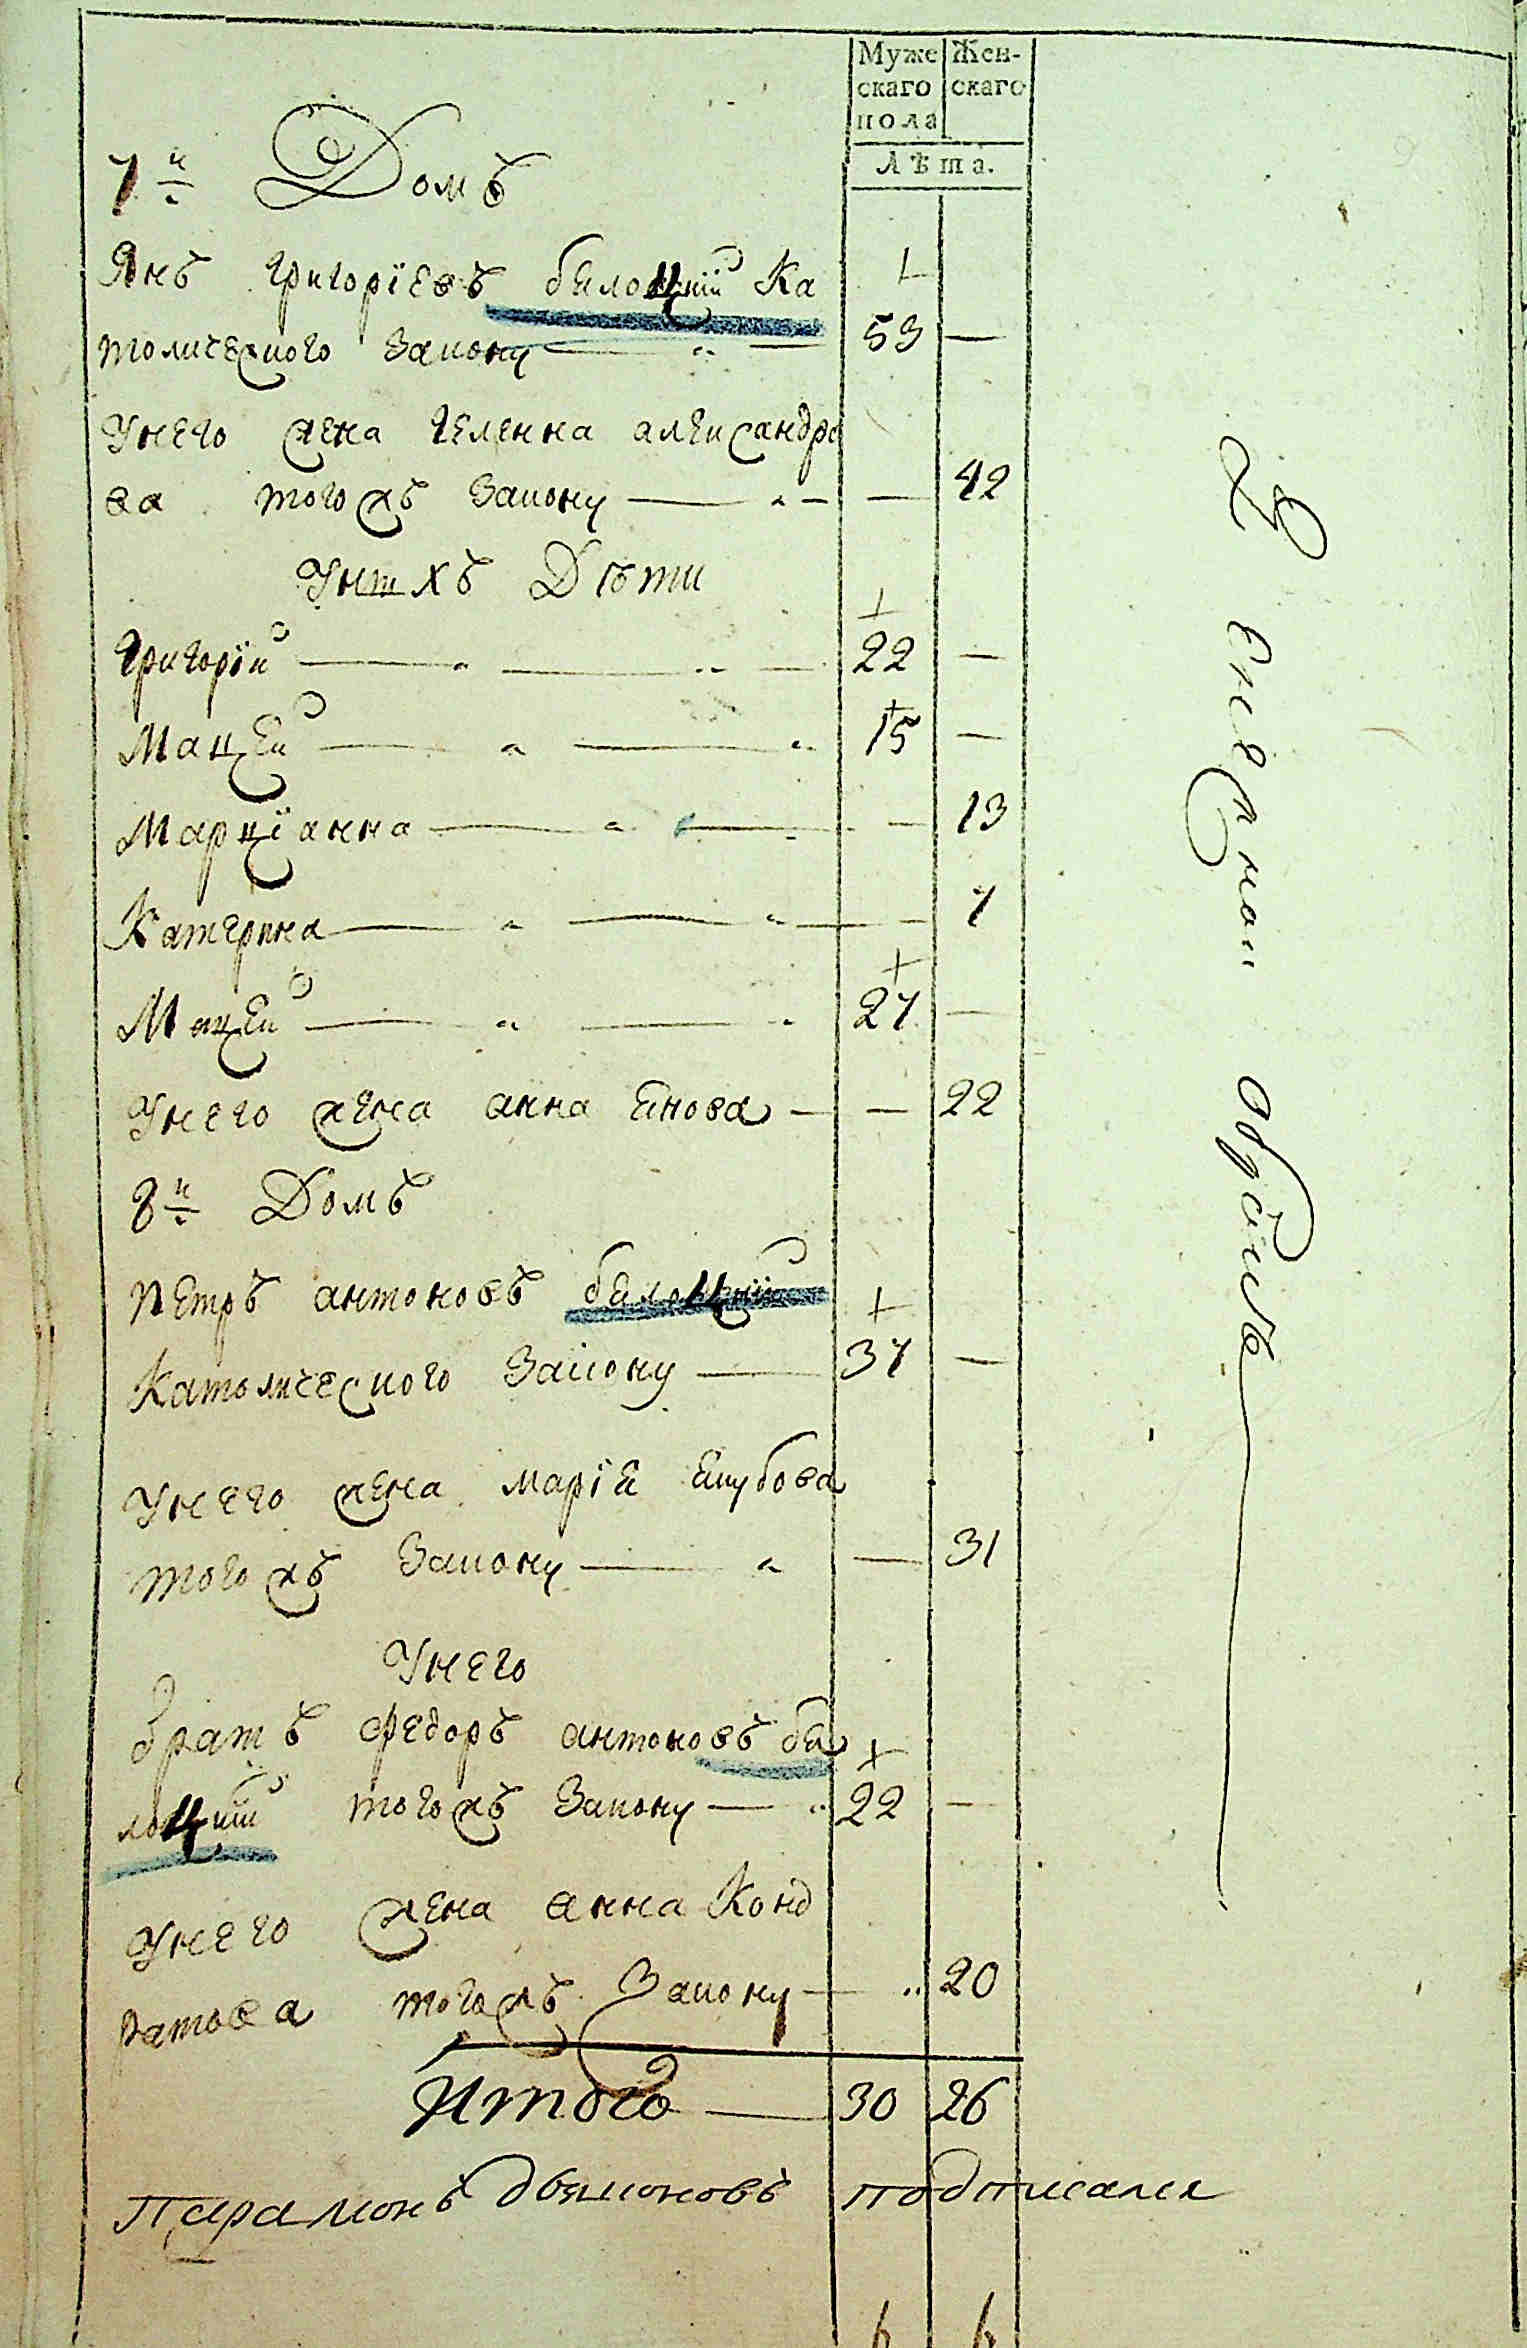 Муже Жен-
скаго скаго
пола
Лѣта.
7й Домъ
Янъ Григоріевъ белоцкій Ка
толического Закону 53 —
Унего жена Геленна александро
ва тогожъ Закону — 42
Унихъ Дѣти
Григорій 22 —
Мацей 15 —
Марціанна — 13
Катерина — 7
Мацей 27 —
Унего жена анна Янова — 22
8й Домъ
Петръ антоновъ белоцкій
Католического Закону 37 —
Унего жена марія Якубова
тогожъ Закону — 31
Унего
братъ Федоръ антоновъ бе
лоцкій тогожъ Закону 22 —
Унего жена анна Конд
ратова тогожъ Закону 20
Итого 30 26
Парамонъ подписался